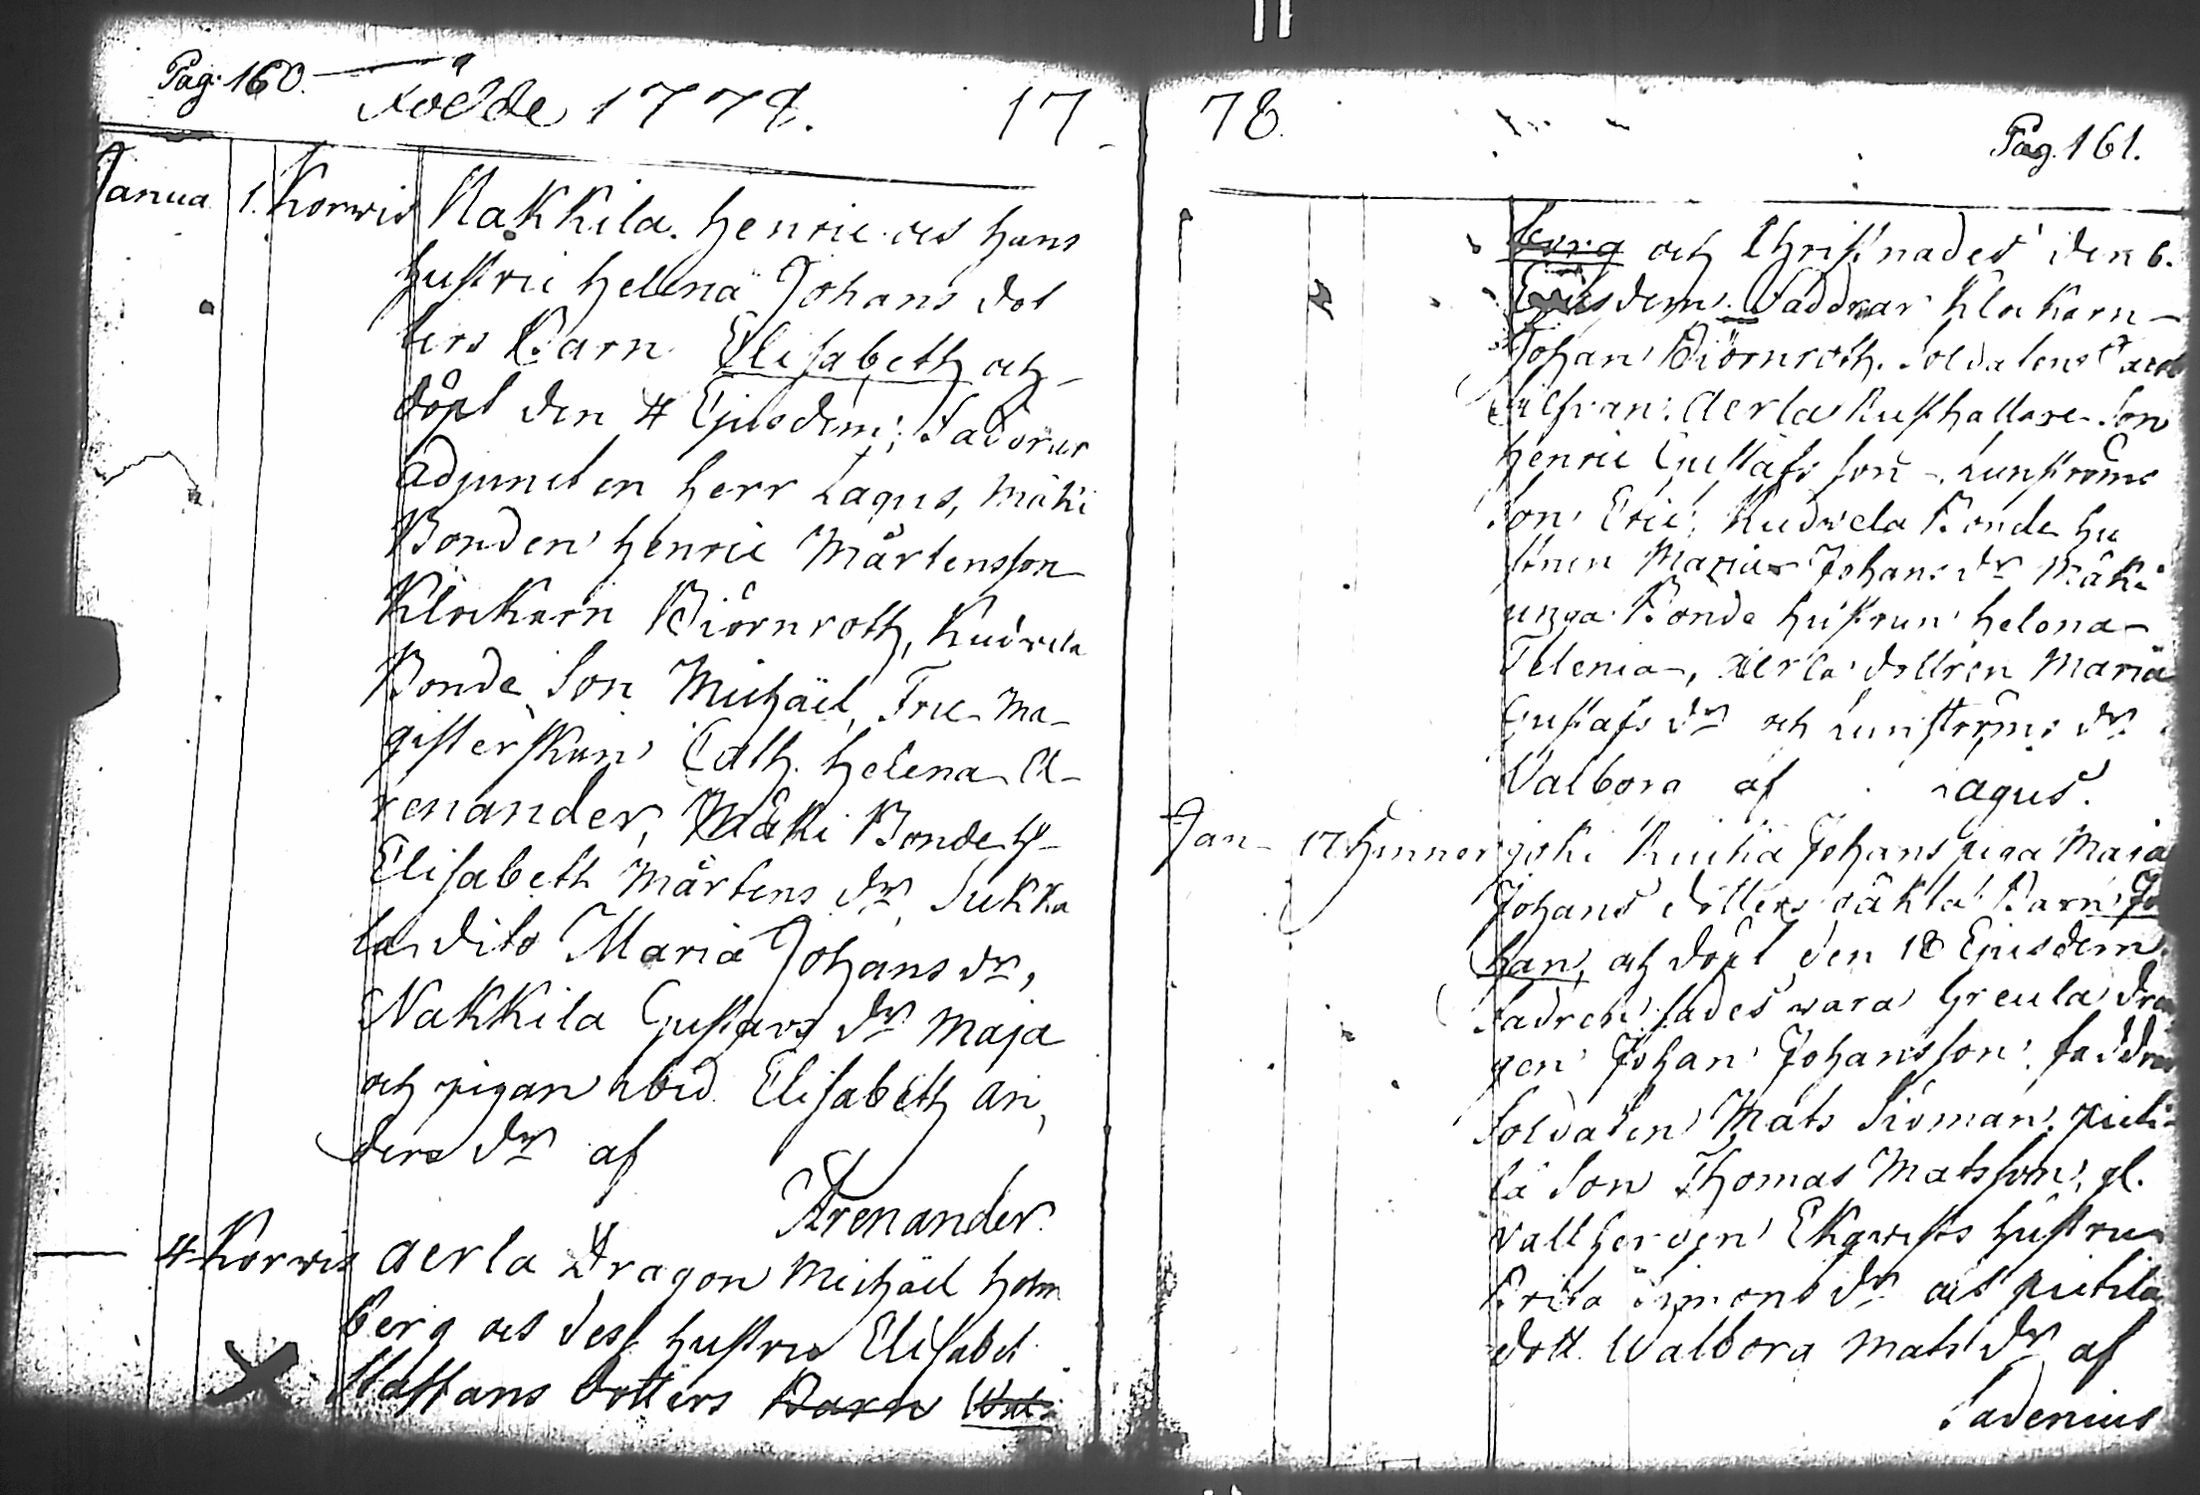 Pag: 160.
Födde 1778. 17
Janua 1. Korwis Nakkila. Henric oct hans
hustru Helena Johans dot
ters Barn Elisabeth och
döpt den 4 Ejusdem; Faddrar
adjuncten Herr Lagus, Mäki
Bonden Henric Mårtensson
Klockarn Biörnroth, Kudvela
Bonde Son Michäel, Fru Ma-
gisterskan Cath. Helena A-
renander, Mäki Bonde H
Elisabeth Mårtens dr, Sukka
la dito Maria Johans dr,
Nakkila Gustavs dr Maja
och pigan ibid. Elisabeth An,
ders dr af
Arenander.
4 Korwis Aerla Dragon Michäel Holm
berg oct dess hustru Elisabet
Staffans dotters Barn Wal:
78. Pag. 161.
borg och Christnades den 6.
Ejusdem. Faddrar Klockarn
Johan Biörnroth. Soldatens
Aerla Rusthållare Son
Henric Gustafs son, Lunströms
Son Eric; Kudvela Bonde hu
strun Maria Johans dr Mäki
unga Bonde hustrun Helena
Telenia, Aerla dottren Maria
Gustafs dr och Lunströms dr
Valborg af Lagus.
Jan 17 Hinner joki Johans piga Maja
Johans dotters oäkta Barn Jo
han, och döpt den 18 Ejusdem.
Fadren sades vara Greula drän
gen Johan Johansson. Faddrar
Soldaten Mats Sivman,
lä Son Thomas Matsson, gl.
Ekqvists hustru
Brita Simons dr oct
dott. Walborg Mats dr af
Sadenius